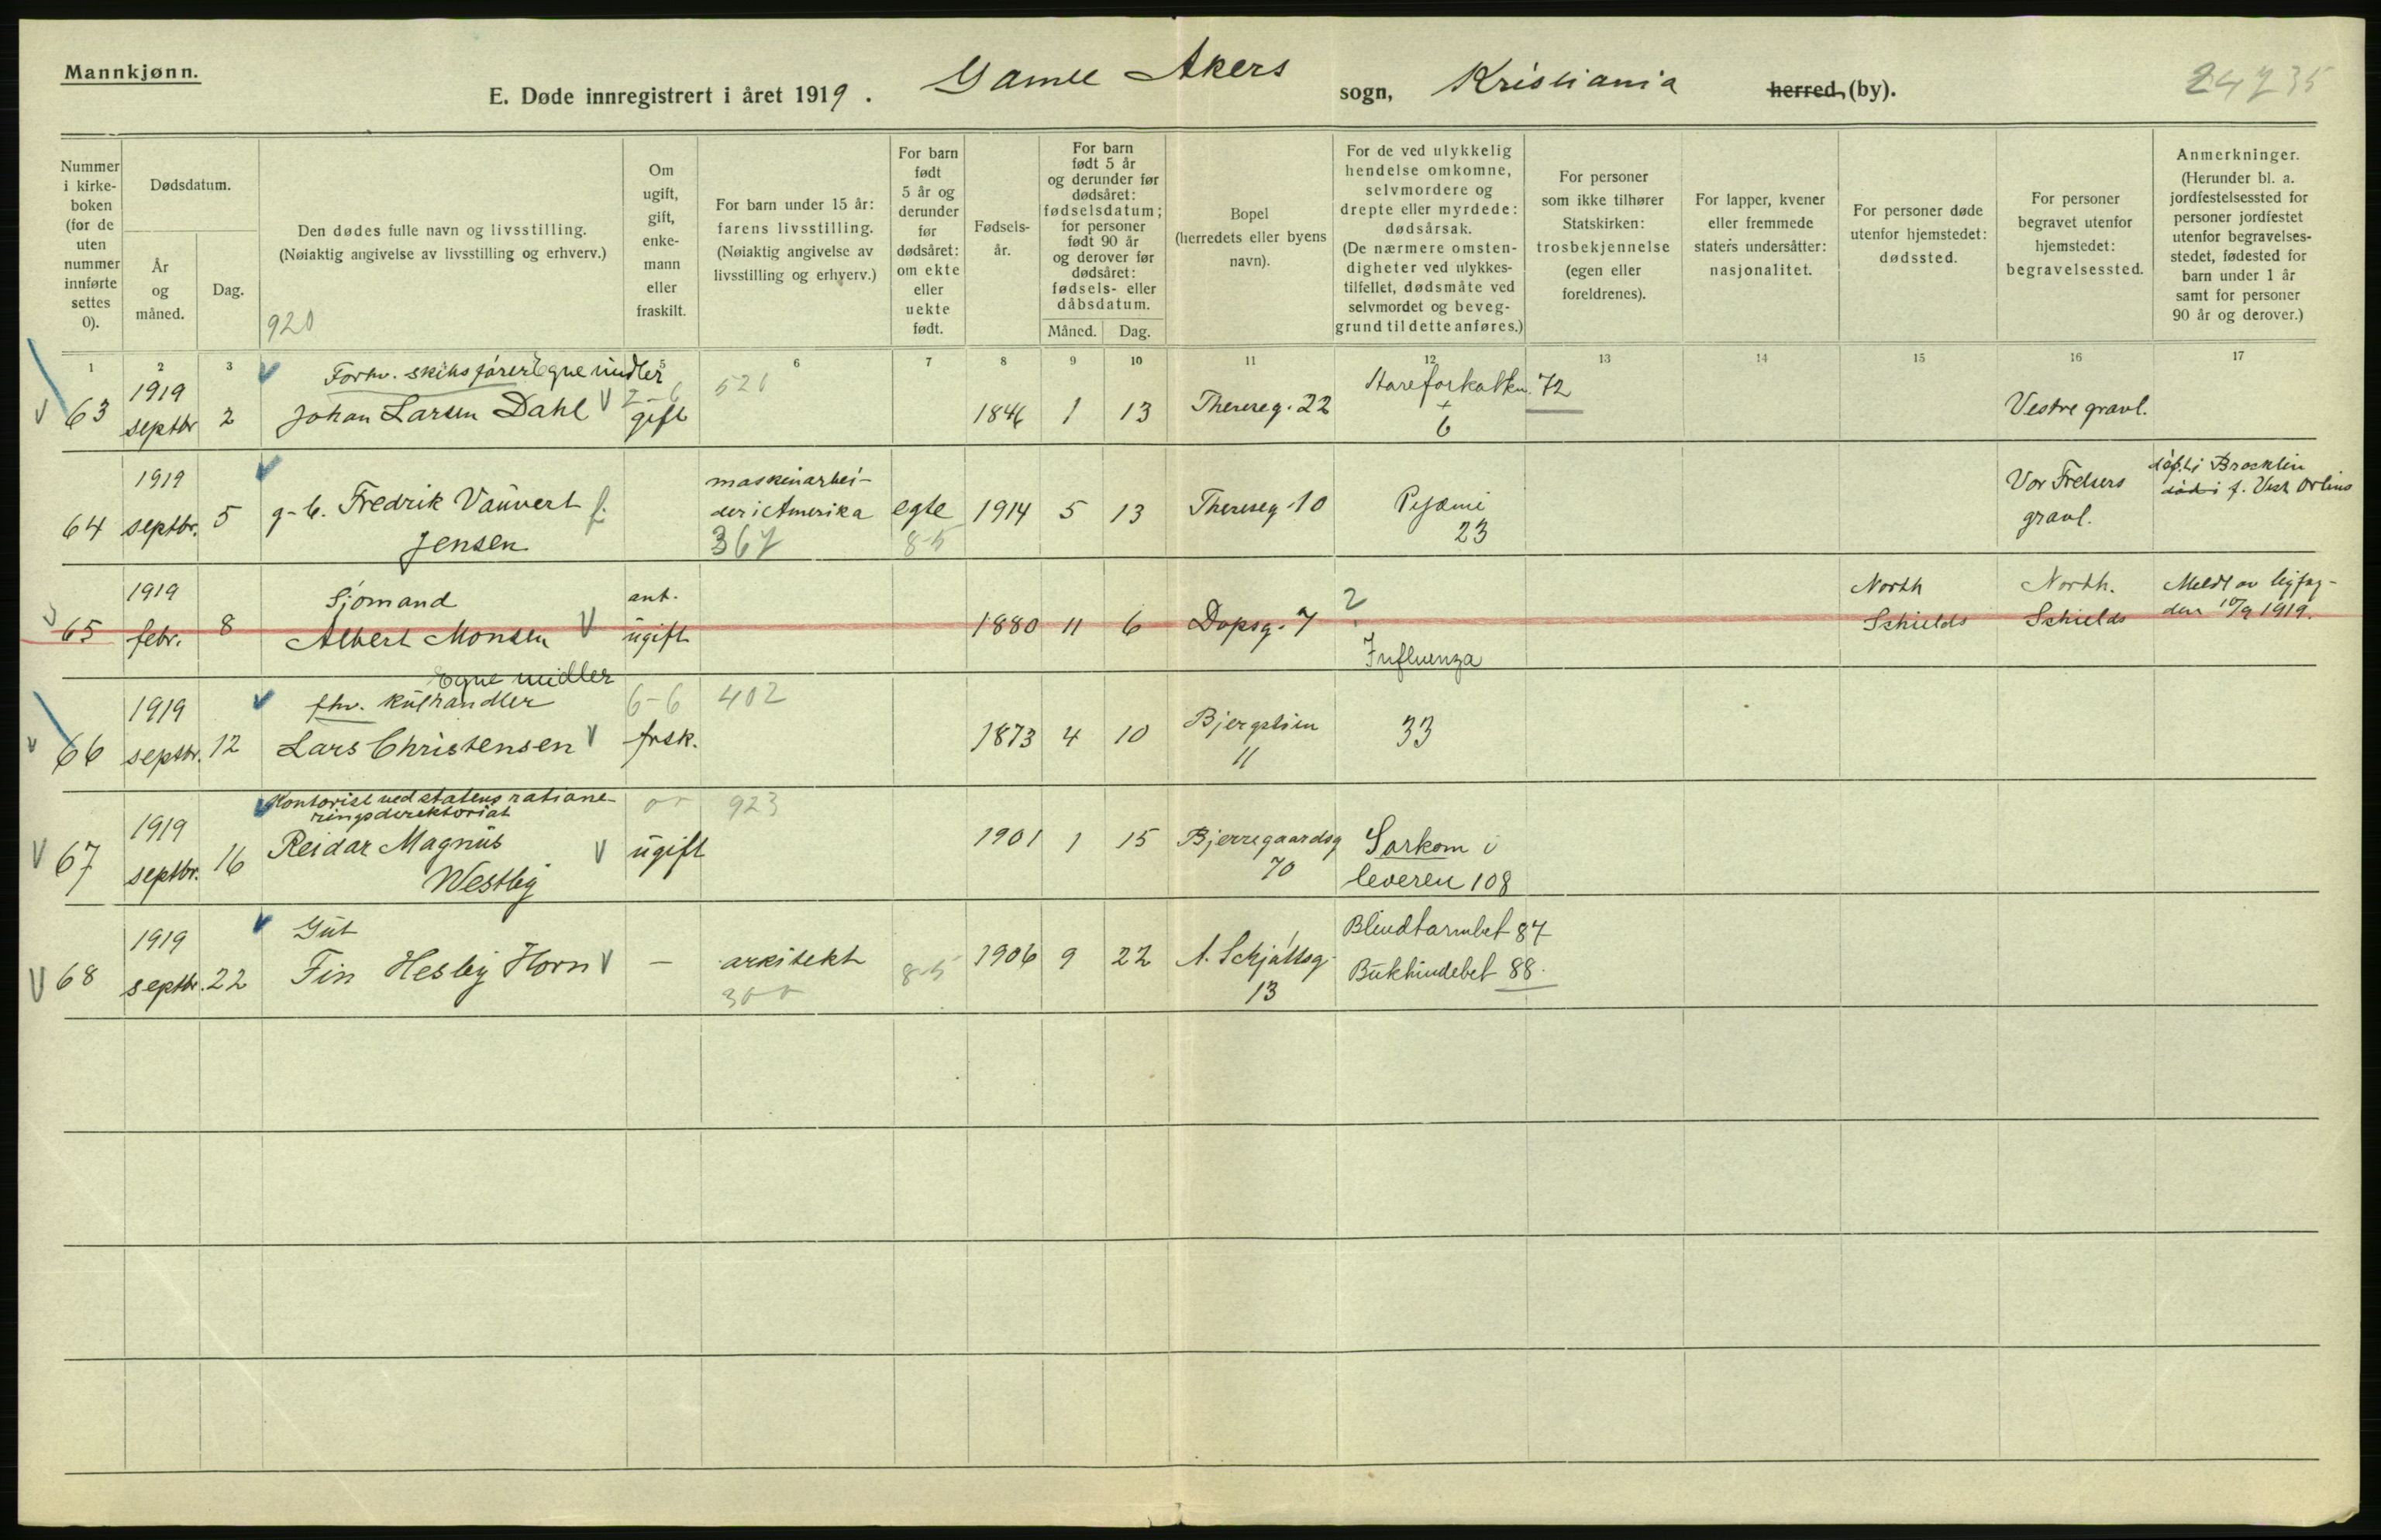 Mannkjønn.
E. Døde innregistrert i året 1919. Gamle Akers sogn, Kristiania herred, (by).
Nummer i kirkeboken (for de uten nummer innførte settes 0).
Dødsdatum.
År og måned.
Dag.
Den dødes fulle navn og livsstilling.
(Nøiaktig angivelse av livsstilling og erhverv.)
920
Om ugift, gift, enkemann eller fraskilt.
For barn under 15 år: farens livsstilling. (Nøiaktig angivelse av livsstilling og erhverv.)
For barn født 5 år og derunder før dødsåret: om ekte eller uekte født.
Fødselsår.
For barn født 5 år og derunder før dødsåret: fødselsdatum; for personer født 90 år og derover før dødsåret: fødsels- eller dåbsdatum.
Måned. Dag.
Bopel (herredets eller byens navn).
For de ved ulykkelig hendelse omkomne, selvmordere og drepte eller myrdede: dødsårsak. (De nærmere omstendigheter ved ulykkestilfellet, dødsmåte ved selvmordet og beveggrund til dette anføres.)
For personer som ikke tilhører Statskirken: trosbekjennelse (egen eller foreldrenes).
For lapper, kvener eller fremmede staters undersåtter: nasjonalitet.
For personer døde utenfor hjemstedet: dødssted.
For personer begravet utenfor hjemstedet: begravelsessted.
Anmerkninger. (Herunder bl. a. jordfestelsessted for personer jordfestet utenfor begravelsesstedet, fødested for barn under 1 år samt for personer 90 år og derover.)
1 2 3 5 6 7 8 9 10 11 12 13 14 15 16 17
Forhv. skibsfører Egne midler
63 1919 septbr 2 Johan Larsen Dahl gift 2-6 1846 1 13 Thereseg. 22 72 6 Vestre gravl.
64 1919 septbr. 5 g-b. Fredrik Vauvert Jensen maskinarbeider i Amerika 367 egte 8-5 1914 5 13 Thereseg 10 Pyæmi 23 Vor Frelsers gravl.
65 1919 febr. 8 Sjømand Albert Monsen ant. ugift 1880 11 6 Dopsg. 7 ? Influenza North Schields North. Schields 10/9 1919.
Egne midler
66 1919 septbr. 12 fhv. kulhandler Lars Christensen 6-6 frsk. 402 1873 4 10 Bjergstien 11 33
67 1919 septbr. 16 Kontorist ved statens rationeringsdirektoriat Reidar Magnus Westby ugift 923 1901 1 15 Bjerregaardsg 70 Sarkom i leveren 108
68 1919 septbr. 22 Gut Fin Hesby Horn — arkitekt 300 8-5 1906 9 22 A. Schjøttsg. 13 Blindtarmbet 87 Bukhindebet 88.